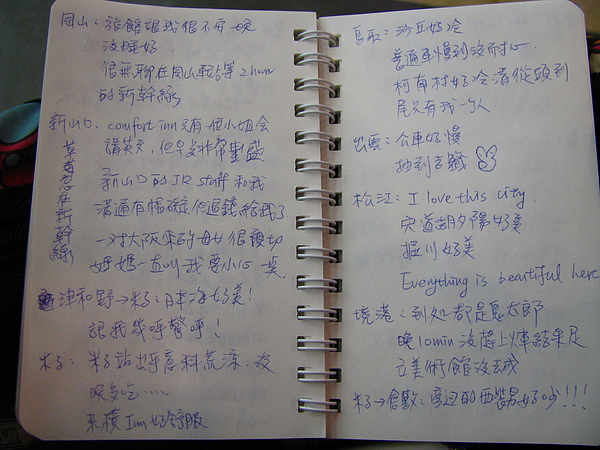 岡山：旅館讓我很不安一晚
沒睡好
很無聊在岡山車站等2 hour
的新幹線
新山口：comfort inn 只有一位小姐會
講英文，但早餐非常豐盛
新山口的JR staff 和我
溝通有幅確定但退錢給我了
一对大阪來的母女很親切
媽媽一直叫我要小心一點
草莓忘在新幹線
津和野→米子：日本海好美！
讓我幾呼聲呼！
米子：米子站出乎意料荒涼，夜
晚多吃……
東橫Inn好舒服
鳥取：沙丘好冷
普通車慢到沒耐心
柯南村好冷清從頭到
尾只有我一个人
出雲：公車好慢
抽到吉籤
松江：I love this city.
宍道湖夕陽好美
堀川好美
Everything is beautiful here
境港：到処都是鬼太郎
晚10min沒趕上火車結果足
立美術館沒去成
米子→倉敷：旁边的西裝男好吵!!!